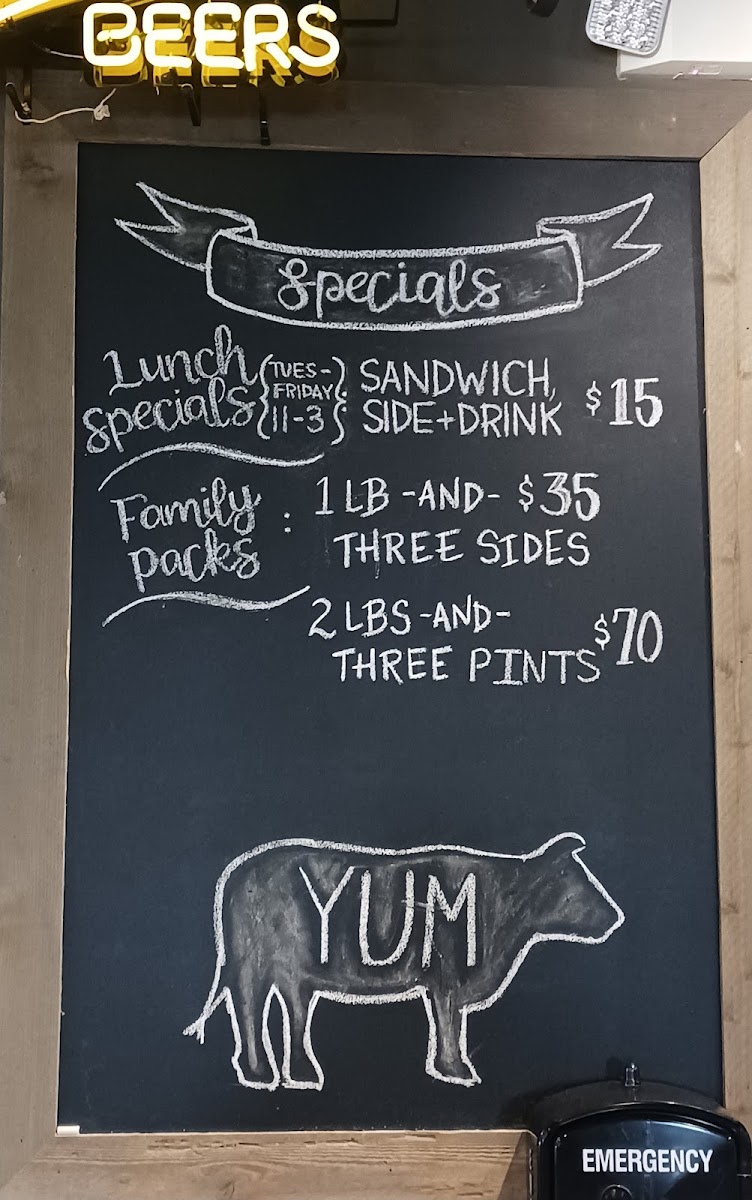 BEERS
Specials
Lunch Specials (TUES-FRIDAY 11-3): SANDWICH, SIDE+DRINK $15
Family Packs : 1 LB -AND- $35
THREE SIDES
2 LBS -AND-
THREE PINTS $70
YUM
EMERGENCY